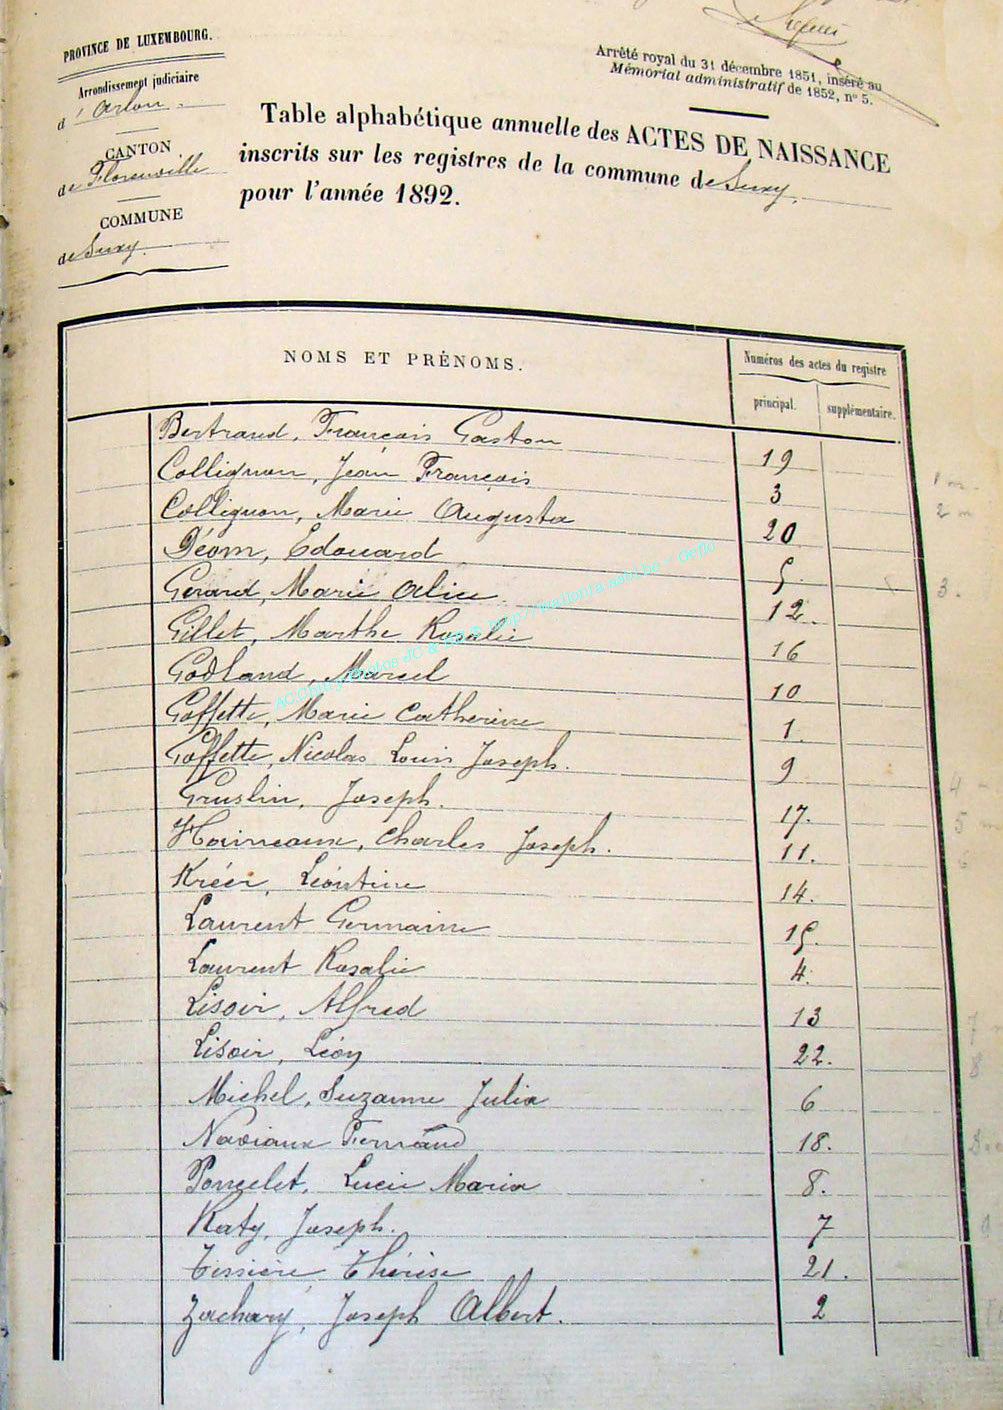 PROVINCE DE LUXEMBOURG.
Arrondissement judiciaire
d'Arlon
CANTON
de Florenville
COMMUNE
de Suxy.
Arrêté royal du 31 décembre 1851, inséré au
Mémorial administratif de 1852, n° 5.
Table alphabétique annuelle des ACTES DE NAISSANCE
inscrits sur les registres de la commune de Suxy,
pour l'année 1892.
NOMS ET PRÉNOMS.
Numéros des actes du registre
principal. supplémentaire.
Bertrand, François Gaston 19
Collignon, Jean François 3
Collignon, Marie Augusta 20
Déom, Édouard 5.
Gérard, Marie Alice 12.
Gillet, Marthe Rosalie 16
Godland, Marcel 10
Goffette, Marie Catherine 1.
Goffette, Nicolas Louis Joseph. 9
Gruslin, Joseph. 17.
Hoinneaux, Charles Joseph. 11.
Kréer, Léontine 14.
Laurent Germaine 15.
Laurent Rosalie 4.
Lisoir, Alfred 13
Lisoir, Léon 22.
Michel, Suzanne Julia 6
Naviaux Fernand 18.
Poncelet, Lucie Maria 8.
Raty, Joseph. 7
Tissière, Thérèse 21.
Zachary, Joseph Albert. 2